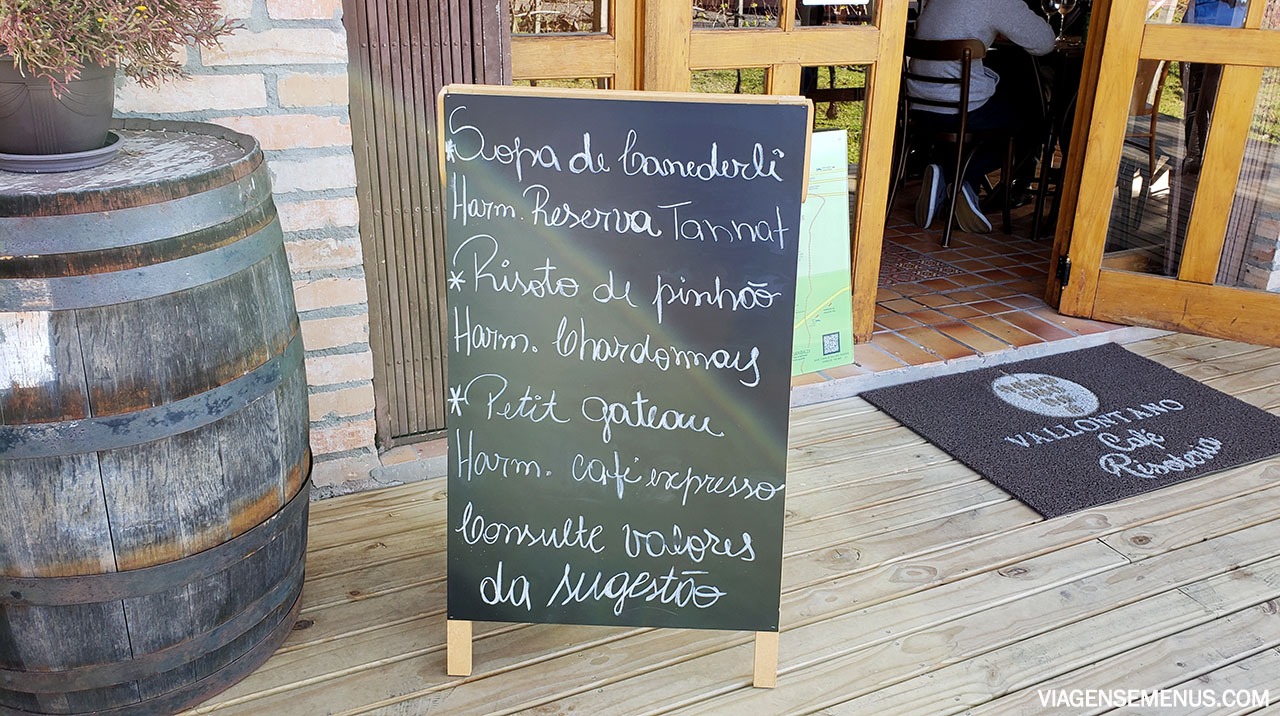 *Sopa de Canederli
Harm. Reserva Tannat
*Risoto de pinhão
Harm. Chardonnay
*Petit gateau
Harm. café expresso
Consulte valores
da sugestão
VALLONTANO
Café
Risoteria
VIAGENSEMENUS.COM